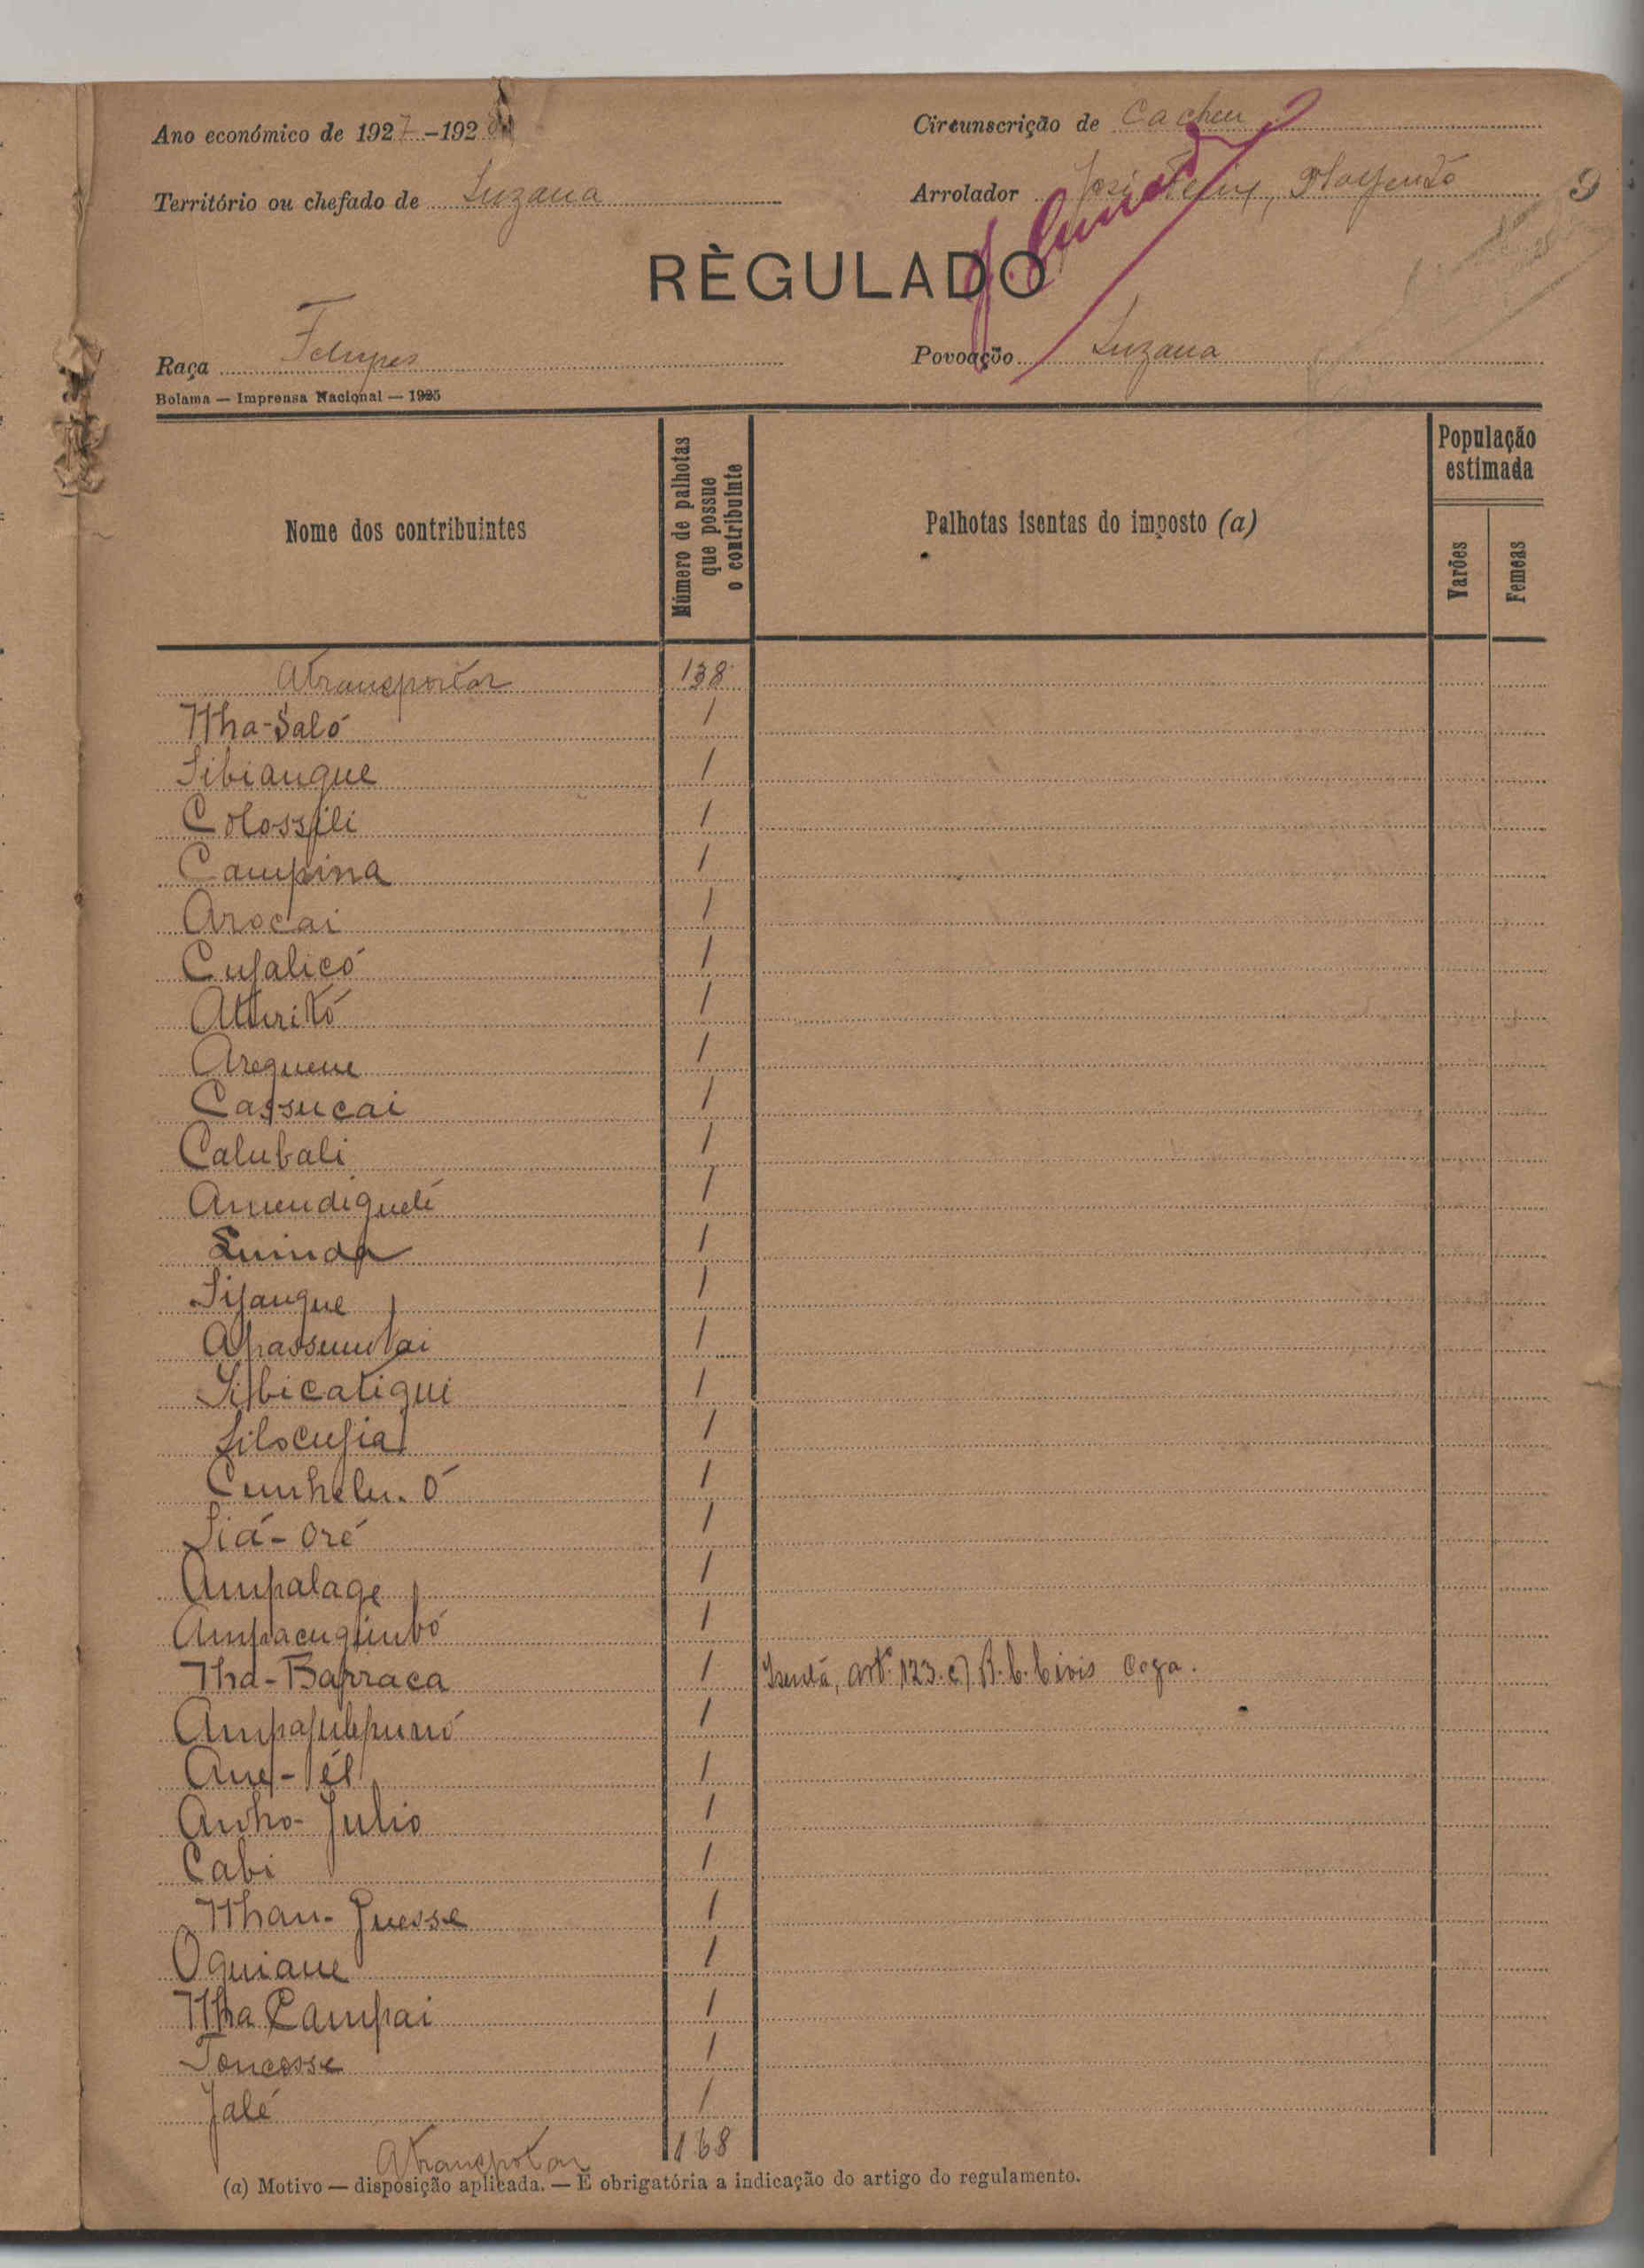 Ano económico de 1927-1928
Circunscrição de Cacheu
Território ou chefado de Suzana
Arrolador José
9
RÈGULADO
Raça Felupes
Povoação Suzana
Bolama — Imprensa Nacional — 1925
Nome dos contribuintes
Número de palhotas que possue o contribuinte
Palhotas isentas do imposto (a)
População estimada
Varões
Femeas
Atransportar 138
Itha-Saló 1
Sibiangue 1
Colossili 1
Campina 1
Arocai 1
Cufalicó 1
Atteritó 1
Areguene 1
Cassucai 1
Calubali 1
Amendiguelé 1
1
Sijangue 1
Apassumtai 1
Sibicatigui 1
Silocufia 1
Cunhelu. ó 1
Siá-oré 1
Ampalage 1
Ampacuguintó 1
Tha-Barraca 1 Isentá, artº 123. c) R. C. Civis Cega.
1
1
Anho-Julio 1
Cabi 1
Ithan-Guesse 1
Oguiane 1
Itha Campai 1
Toncosse 1
Jalé 1
Atransportar 168
(a) Motivo — disposição aplicada. — É obrigatória a indicação do artigo do regulamento.